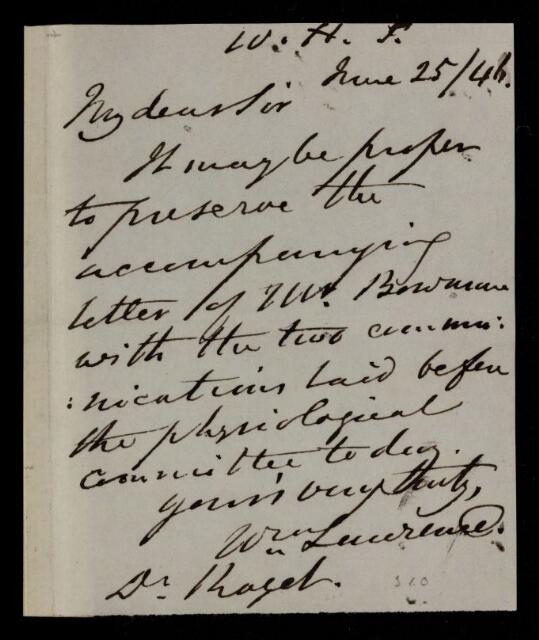 W. H. P.
June 25/46.
My dear Sir
It may be proper
to preserve the
accompanying
letter of Mr. Bowman
with the two commu:
:nications laid before
the physiological
committee to day.
yours very truly,
Wm Lawrence.
Dr Roget.
310